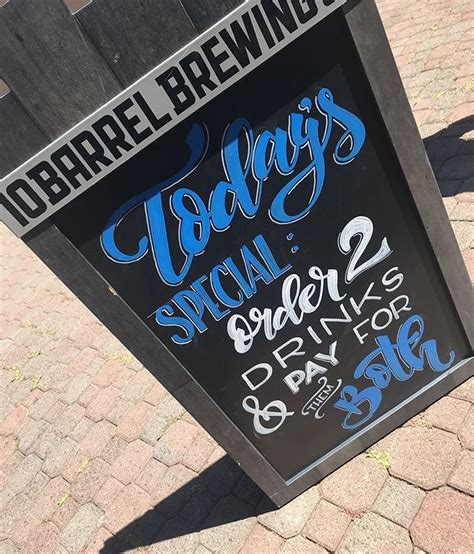 10 BARREL BREWING
Today's
SPECIAL:
order 2
DRINKS
& PAY FOR
THEM Both